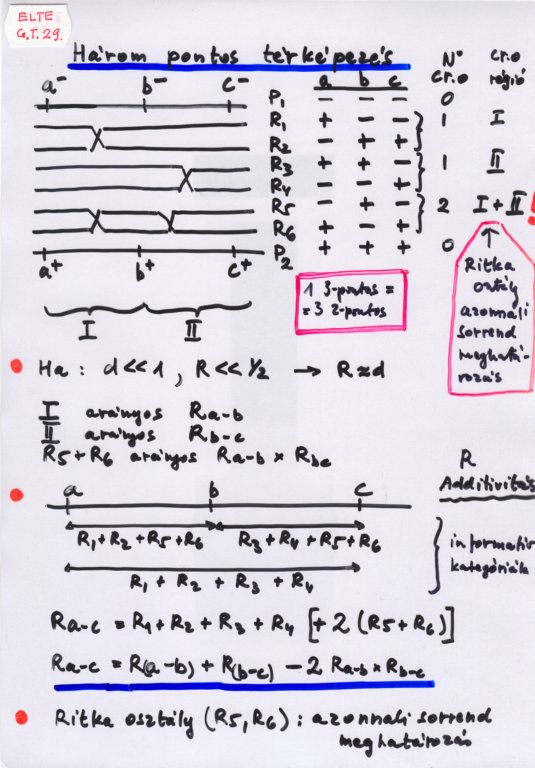 ELTE
G.T. 29.
Három pontos térképezés
N° cr.o
cr.o régió
a⁻ b⁻ c⁻
a b c
P1 − − − 0
R1 + − −
R2 − + +
1 I
R3 + + −
R4 − − +
1 II
R5 − + −
R6 + − +
2 I + II !
P2 + + + 0
a⁺ b⁺ c⁺
I II
1 3-pontos =
= 3 2-pontos
↑
Ritka
osztály
azonnali
sorrend
meghatá-
rozás
Ha : d << 1 , R << 1/2 → R ≈ d
I arányos Ra-b
II arányos Rb-c
R5 + R6 arányos Ra-b × Rbc
R
Additivitás
a b c
R1 + R2 + R5 + R6 R3 + R4 + R5 + R6
R1 + R2 + R3 + R4
informatív
kategóriák
Ra-c = R1 + R2 + R3 + R4 [+ 2 (R5 + R6)]
Ra-c = R(a-b) + R(b-c) − 2 Ra-b × Rb-c
Ritka osztály (R5, R6) : azonnali sorrend
meghatározás